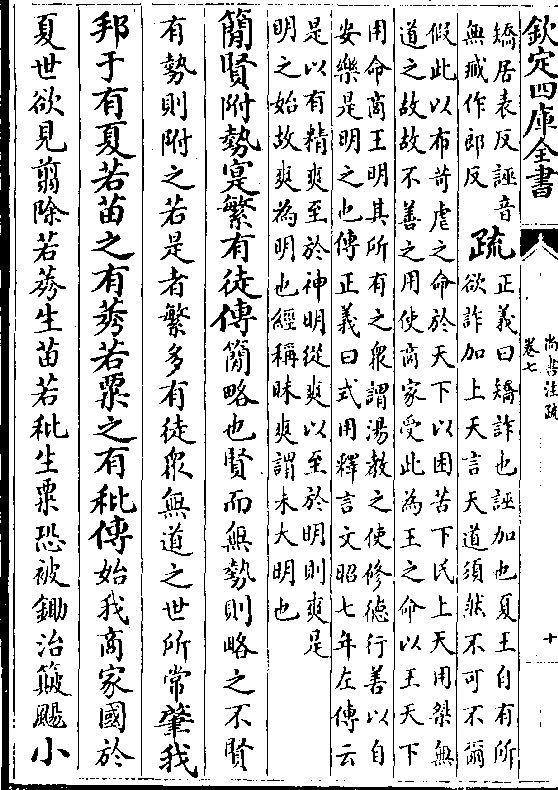 欽定四庫全書
尚書注疏
卷七
十
矯居表反誣音
無臧作郎反
疏
正義曰矯詐也誣加也夏王自有所
欲詐加上天言天道須然不可不爾
假此以布苛虐之命於天下以困苦下民上天用桀無
道之故故不善之用使商家受此為王之命以王天下
用命商王明其所有之衆謂湯教之使修德行善以自
安樂是明之也傳正義曰式用釋言文昭七年左傳云
是以有精爽至於神明從爽以至於明則爽是
明之始故爽為明也經稱昧爽謂未大明也
簡賢附勢寔繁有徒傳簡略也賢而無勢則略之不賢
有勢則附之若是者繁多有徒衆無道之世所常肇我
邦于有夏若苗之有莠若粟之有秕傳始我商家國於
夏世欲見翦除若莠生苗若秕生粟恐被鋤治簸颺小